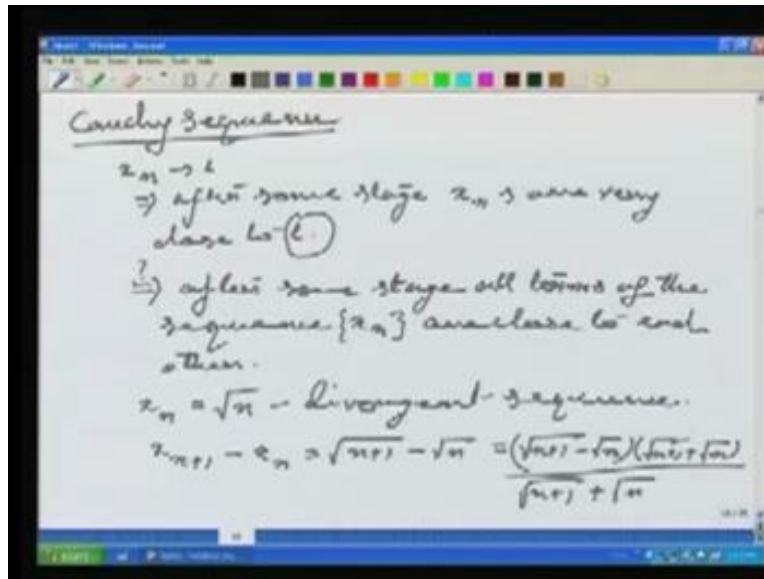 Cauchy Sequence
xₙ → l
⇒ after some stage xₙ s are very
close to l.
?
⇒ after some stage all terms of the
sequence {xₙ} are close to each
other.
xₙ = √n - divergent sequence.
xₙ₊₁ - xₙ = √(n+1) - √n = (√(n+1) - √n)(√(n+1) + √n) / (√(n+1) + √n)